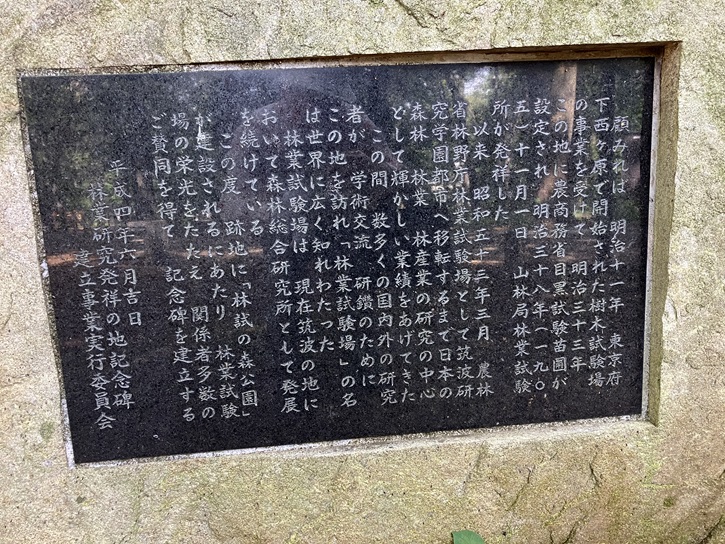 顧みれば 明治十一年 東京府
下西ヶ原で開始された樹木試験場
の事業を受けて 明治三十三年
この地に農商務省目黒試験苗圃が
設定され 明治三十八年（一九〇
五）十一月一日 山林局林業試験
所が発祥した
以来 昭和五十三年三月 農林
省林野庁林業試験場として筑波研
究学園都市へ移転するまで日本の
森林 林業 林産業の研究の中心
として輝かしい業績をあげてきた
この間 数多くの国内外の研究
者が 学術交流 研鑽のために
この地を訪れ「林業試験場」の名
は世界に広く知れわたった
林業試験場は 現在筑波の地に
おいて森林総合研究所として発展
を続けている
この度 跡地に「林試の森公園」
が建設されるにあたり 林業試験
場の栄光をたたえ 関係者多数の
ご賛同を得て 記念碑を建立する
平成四年六月吉日
林業研究発祥の地記念碑
建立事業実行委員会